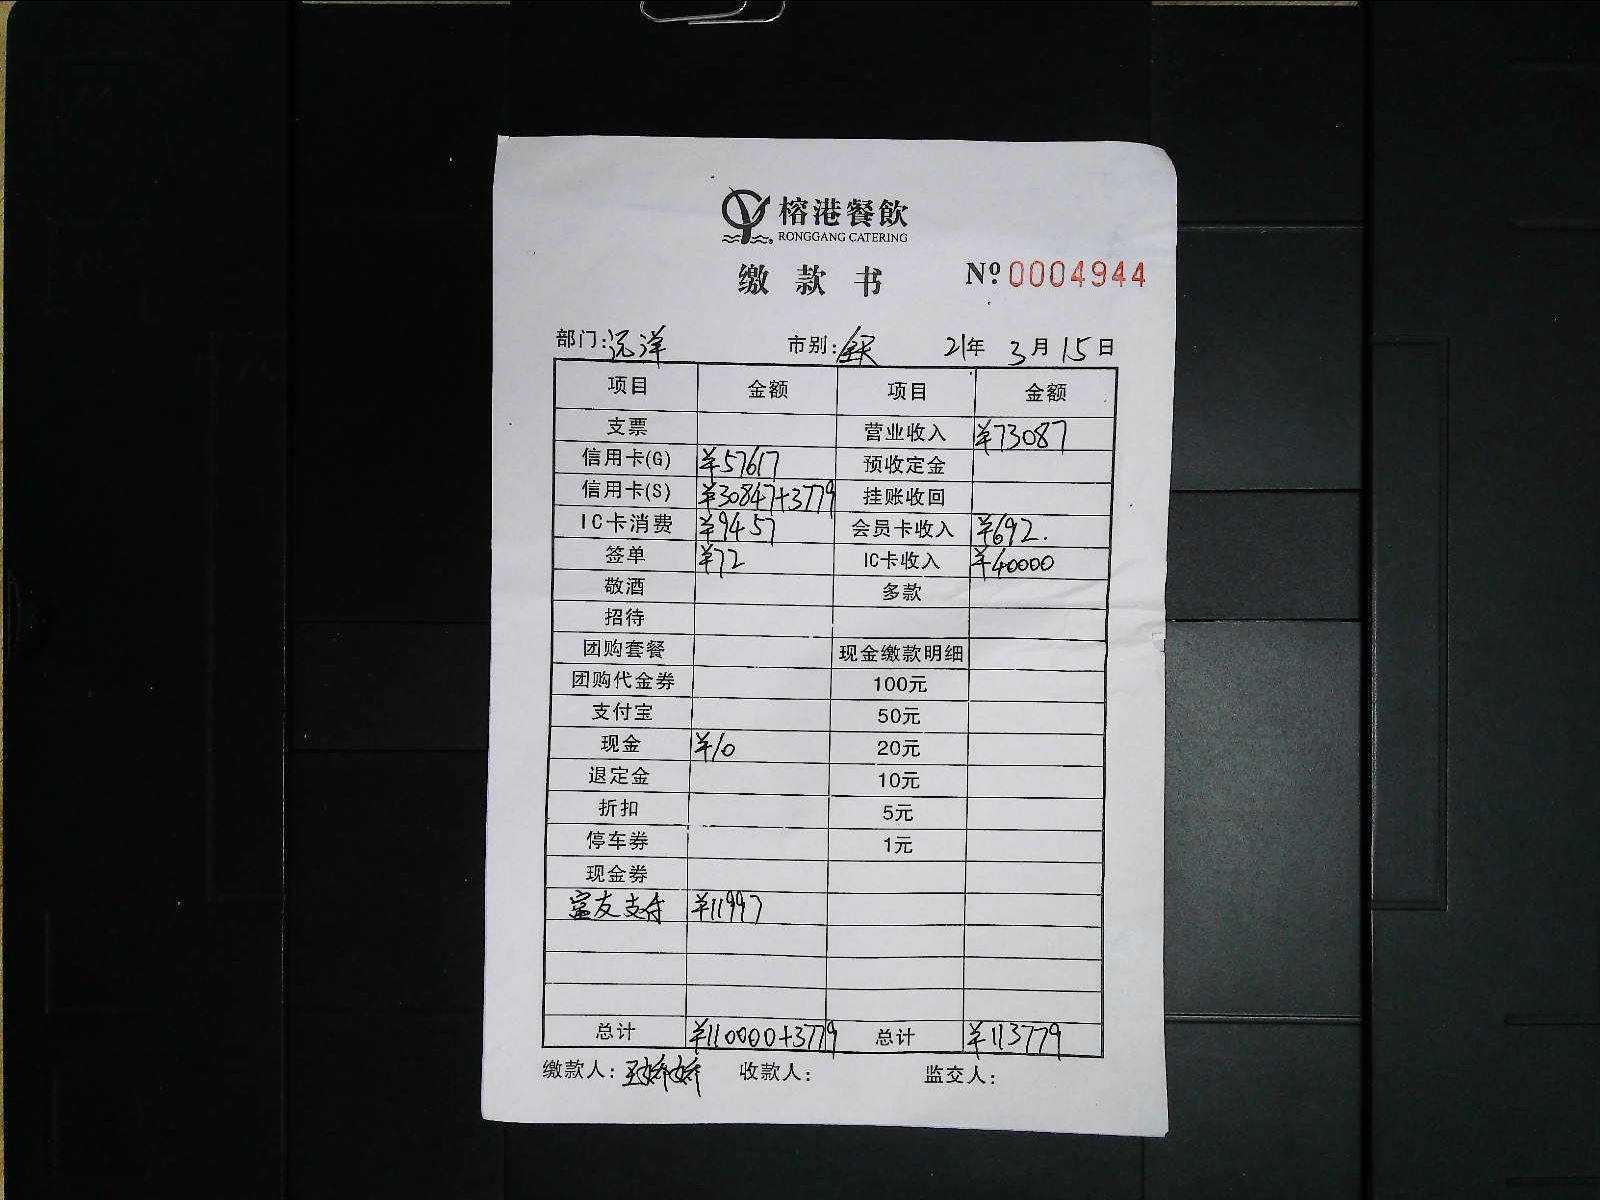 榕港餐飲
RONGGANG CATERING
缴款书 Nº.0004944
部门:远洋 市别:全天 21年 3月 15日
项目 金额 项目 金额
支票 营业收入 ¥73087
信用卡(G) ¥57617 预收定金
信用卡(S) ¥30847+3779 挂账收回
IC卡消费 ¥9457 会员卡收入 ¥692.
签单 ¥72 IC卡收入 ¥40000
敬酒 多款
招待
团购套餐 现金缴款明细
团购代金券 100元
支付宝 50元
现金 ¥10 20元
退定金 10元
折扣 5元
停车券 1元
现金券
富友支付 ¥11997
总计 ¥110000+3779 总计 ¥113779
缴款人: 娇娇 收款人: 监交人: